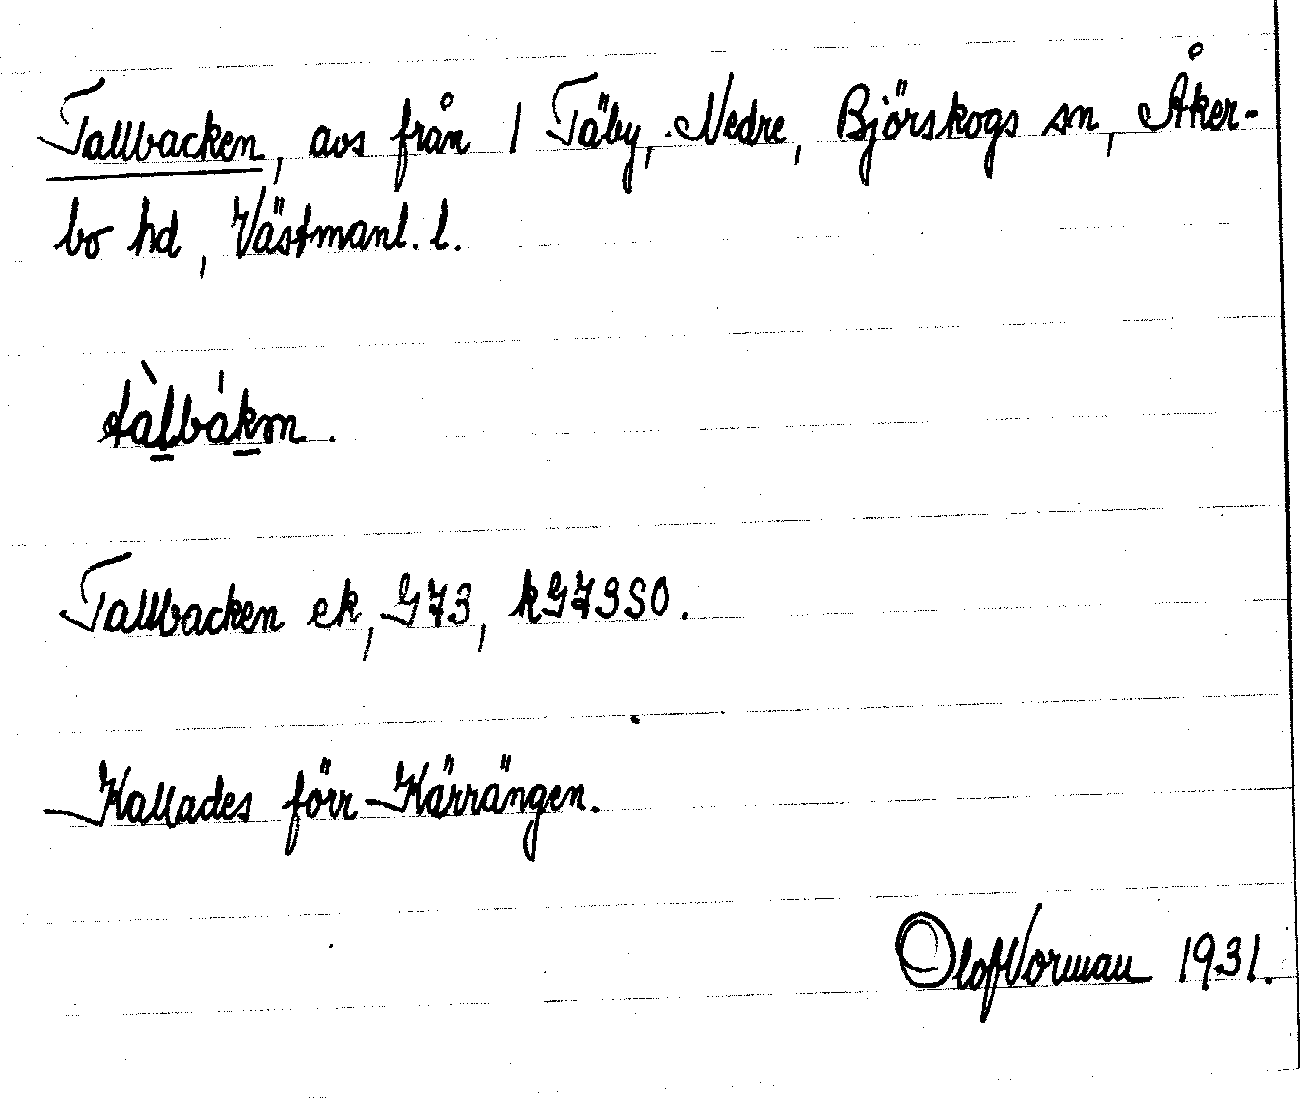 Tallbacken, avs från 1 Täby, Nedre, Björskogs sn, Åker-
bo hd, Västmanl. l.
tàl̲bák̲m.
Tallbacken ek, G73, kG73SO.
Kallades förr Kärrängen.
Olof Vorman 1931.